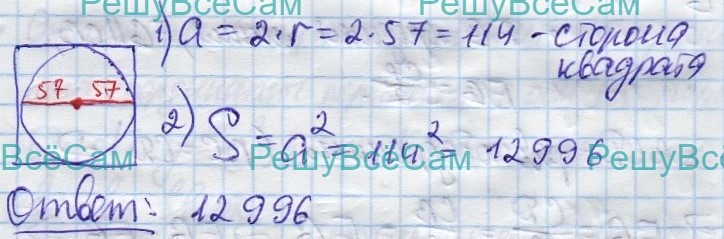 РешуВсёСам РешуВсёСам
1) a = 2·r = 2·57 = 114 - сторона
квадрата
57 57
2) S = a² = 114² = 12996
ВсёСам РешуВсёСам РешуВсё
Ответ: 12996